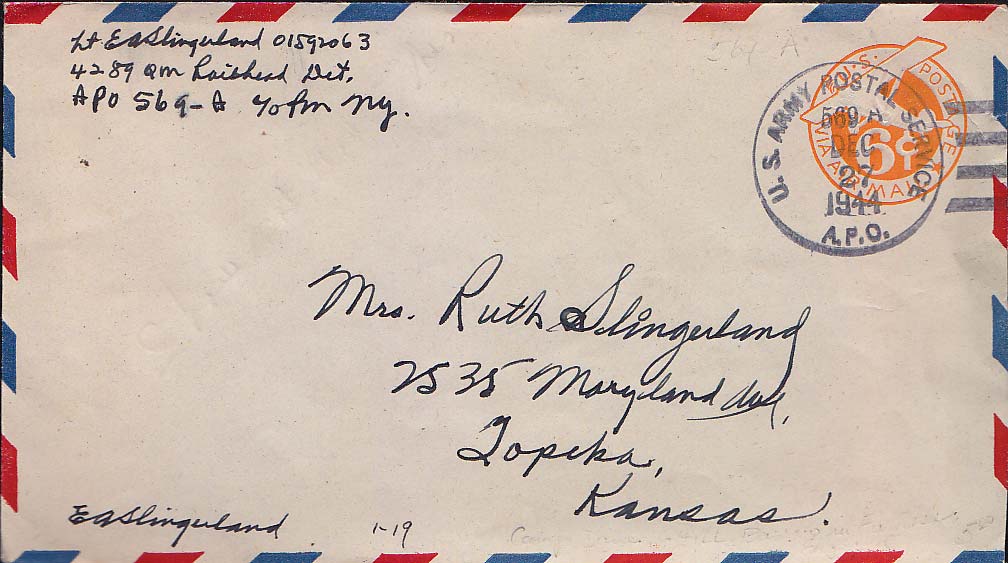 Lt EASlingerland 01592063
4289 QM Railhead Det.
APO 569-A % PM NY.
564 A
U.S. POSTAGE
VIA AIR MAIL
6¢
U.S. ARMY POSTAL SERVICE
569 A
DEC
27
1944
A.P.O.
Mrs. Ruth Slingerland
2535 Maryland Ave,
Topeka,
Kansas.
EASlingerland
1-19